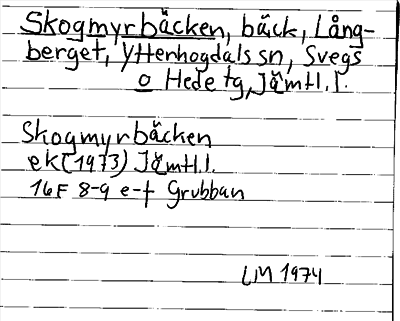 Skogmyrbäcken, bäck, Lång-
berget, Ytterhogdals sn, Svegs
o Hede tg, Jämtl. l.
Skogmyrbäcken
ek (1973) Jämtl.l.
16F 8-9 e-f Grubban
LM 1974